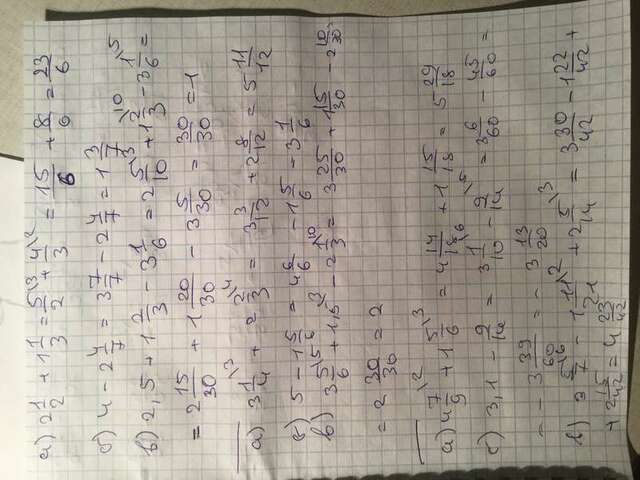 а) 2 1/2 + 1 1/3 = 5/2 \3 + 4/3 \2 = 15/6 + 8/6 = 23/6
б) 4 - 2 4/7 = 3 7/7 - 2 4/7 = 1 3/7
в) 2,5 + 1 2/3 - 3 1/6 = 2 5/10 \3 + 1 2/3 \10 - 3 1/6 \5 =
= 2 15/30 + 1 20/30 - 3 5/30 = 30/30 = 1
а) 3 1/4 \3 + 2 2/3 \4 = 3 3/12 + 2 8/12 = 5 11/12
б) 5 - 1 5/6 = 4 6/6 - 1 5/6 - 3 1/6
в) 3 5/6 \5 + 1,5 \3 - 2 1/3 \10 = 3 25/30 + 1 15/30 - 2 10/30 =
= 2 30/30 = 2
а) 4 7/9 \2 + 1 5/6 \3 = 4 14/18 + 1 15/18 = 5 29/18
б) 3,1 - 9/14 = 3 1/10 \6 - 9/14 \5 = 3 6/60 - 45/60 =
= - 3 39/60 = - 3 13/20
в) 3 5/7 \6 - 1 11/21 \2 + 2 5/14 \3 = 3 30/42 - 1 22/42 +
+ 2 15/42 = 4 23/42